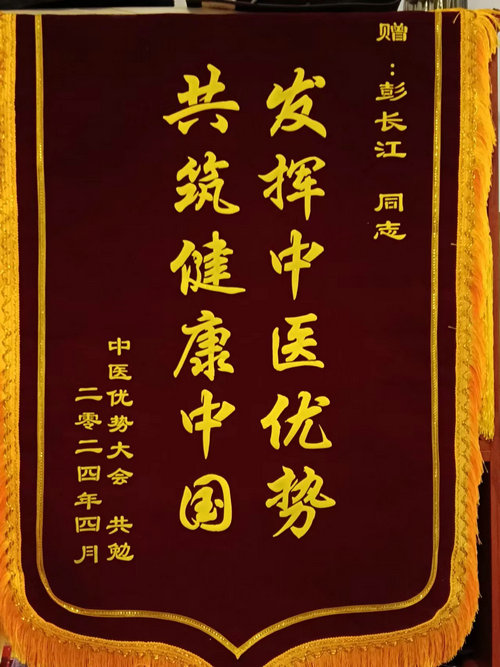 赠：彭长江 同志
发挥中医优势
共筑健康中国
中医优势大会 共勉
二零二四年四月